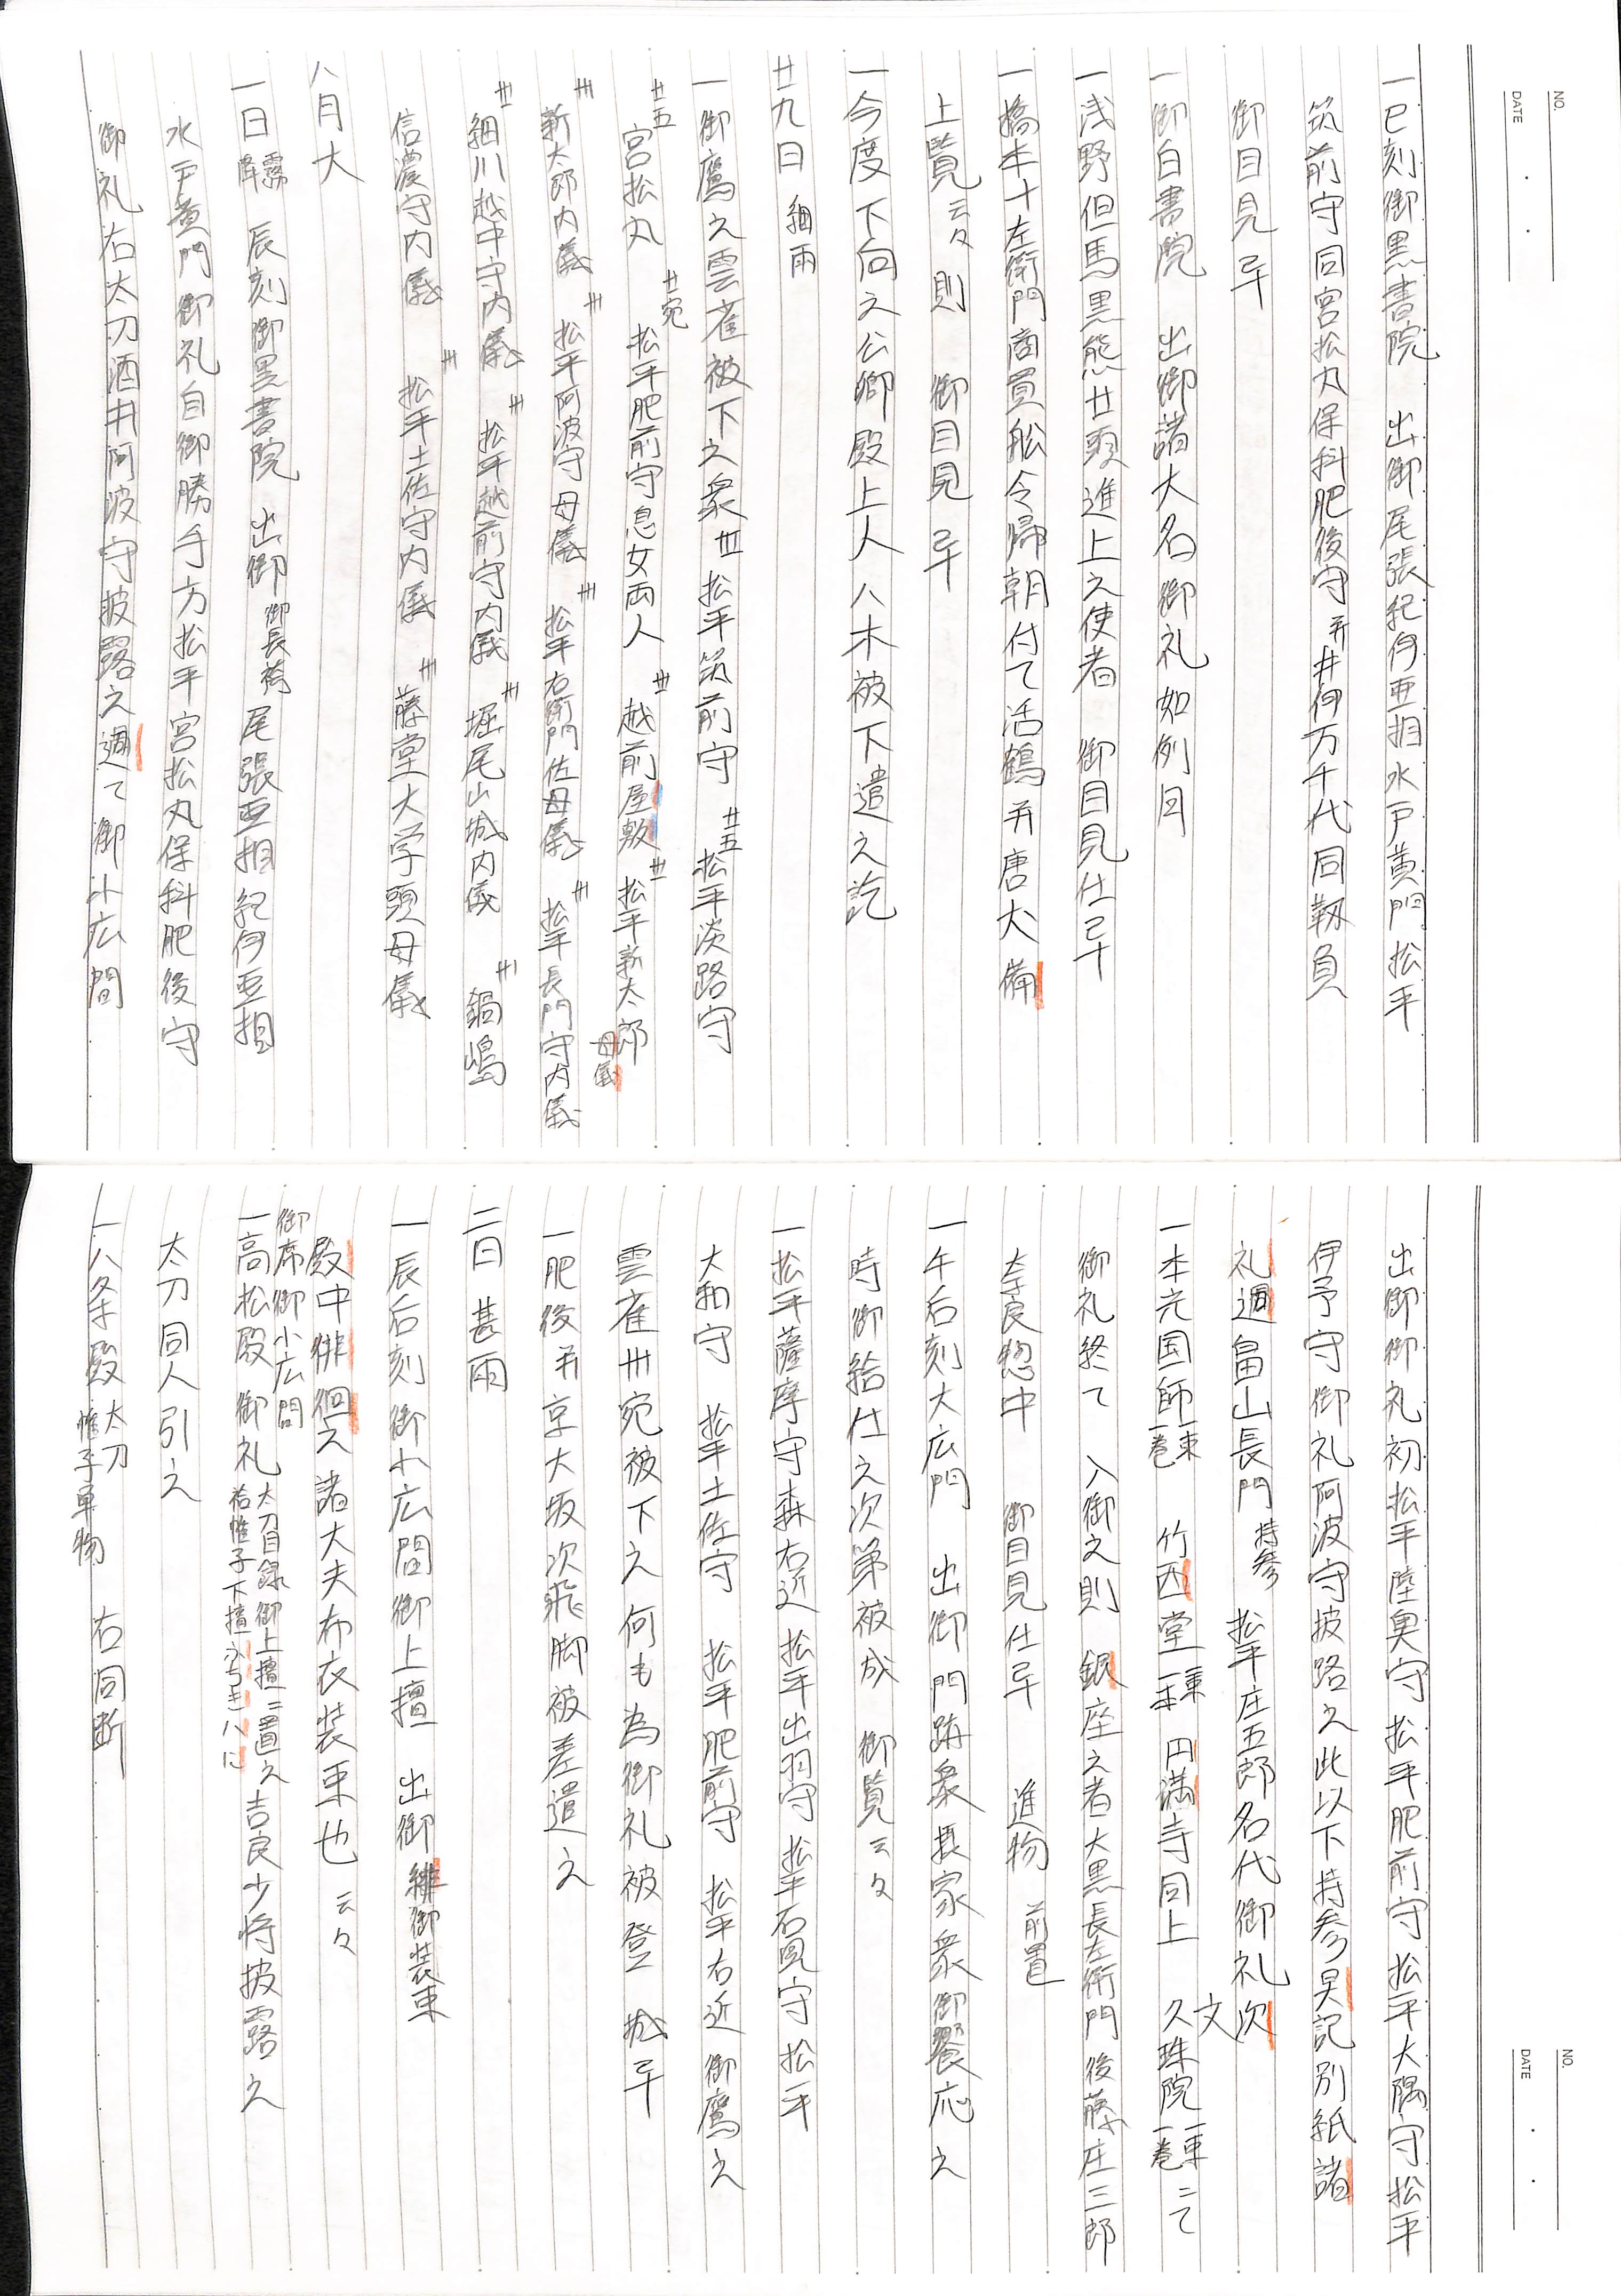 NO.
DATE
一巳刻御黒書院 出御尾張紀伊亜相水戸黄門松平
筑前守同宮松丸保科肥後守并井伊万千代同靱負
御目見 畢
一御白書院 出御諸大名御礼如例月
一浅野但馬黒熊廿頭進上之使者 御目見仕畢
一橋本十左衛門商買舩令帰朝付て活鶴并唐犬備
上覧云々則 御目見 畢
一今度下向之公卿殿上人八木被下遣之訖
廿九日 細雨
一御鷹之雲雀被下之衆 卅 松平筑前守 廿五 松平淡路守
廿五 宮松丸 廿宛 松平肥前守息女両人 廿 越前屋敷 廿 松平新太郎母儀
卅 新太郎内儀 卅 松平阿波守母儀 卅 松平右衛門佐母儀 卅 松平長門守内儀
廿 細川越中守内儀 廿 松平越前守内儀 卅 堀尾山城内儀 卅 鍋嶋
信濃守内儀 廾 松平土佐守内儀 卅 藤堂大学頭母儀
八月大
一日 霧降 辰刻御黒書院 出御 御長袴 尾張亜相紀伊亜相
水戸黄門御礼自御勝手方松平宮松丸保科肥後守
御礼右太刀酒井阿波守披露之過て御小広間
NO.
DATE
出御御礼初松平陸奥守松平肥前守松平大隅守松平
伊予守御礼阿波守披路之此以下持参見記別紙諸
礼過畠山長門 持参 松平庄五郎名代御礼次
一本光国師 一束一巻 竹西堂 一束一本 円満寺同上 文久珠院 一束一巻 ニて
御礼終て 入御之則 銀座之者大黒長左衛門後藤庄三郎
奈良惣中 御目見仕畢 進物 前置
一午后刻大広門 出御門跡衆摂家衆御饗応之
時御給仕之次第被成 御覧云々
一松平薩摩守森右近松平出羽守松平石見守松平
大和守 松平土佐守 松平肥前守 松平右近 御鷹之
雲雀卅宛被下之何も為御礼被登 城畢
一肥後并京大坂次飛脚被差遣之
二日 甚雨
一辰后刻御小広間御上擅 出御 緋御装束
殿中徘徊之諸大夫布衣装束也 云々
御席御小広間
一高松殿 御礼 太刀目録御上擅ニ置之 吉良少将披露之
太刀同人引之
一八条殿 太刀 帷子単物 右同断